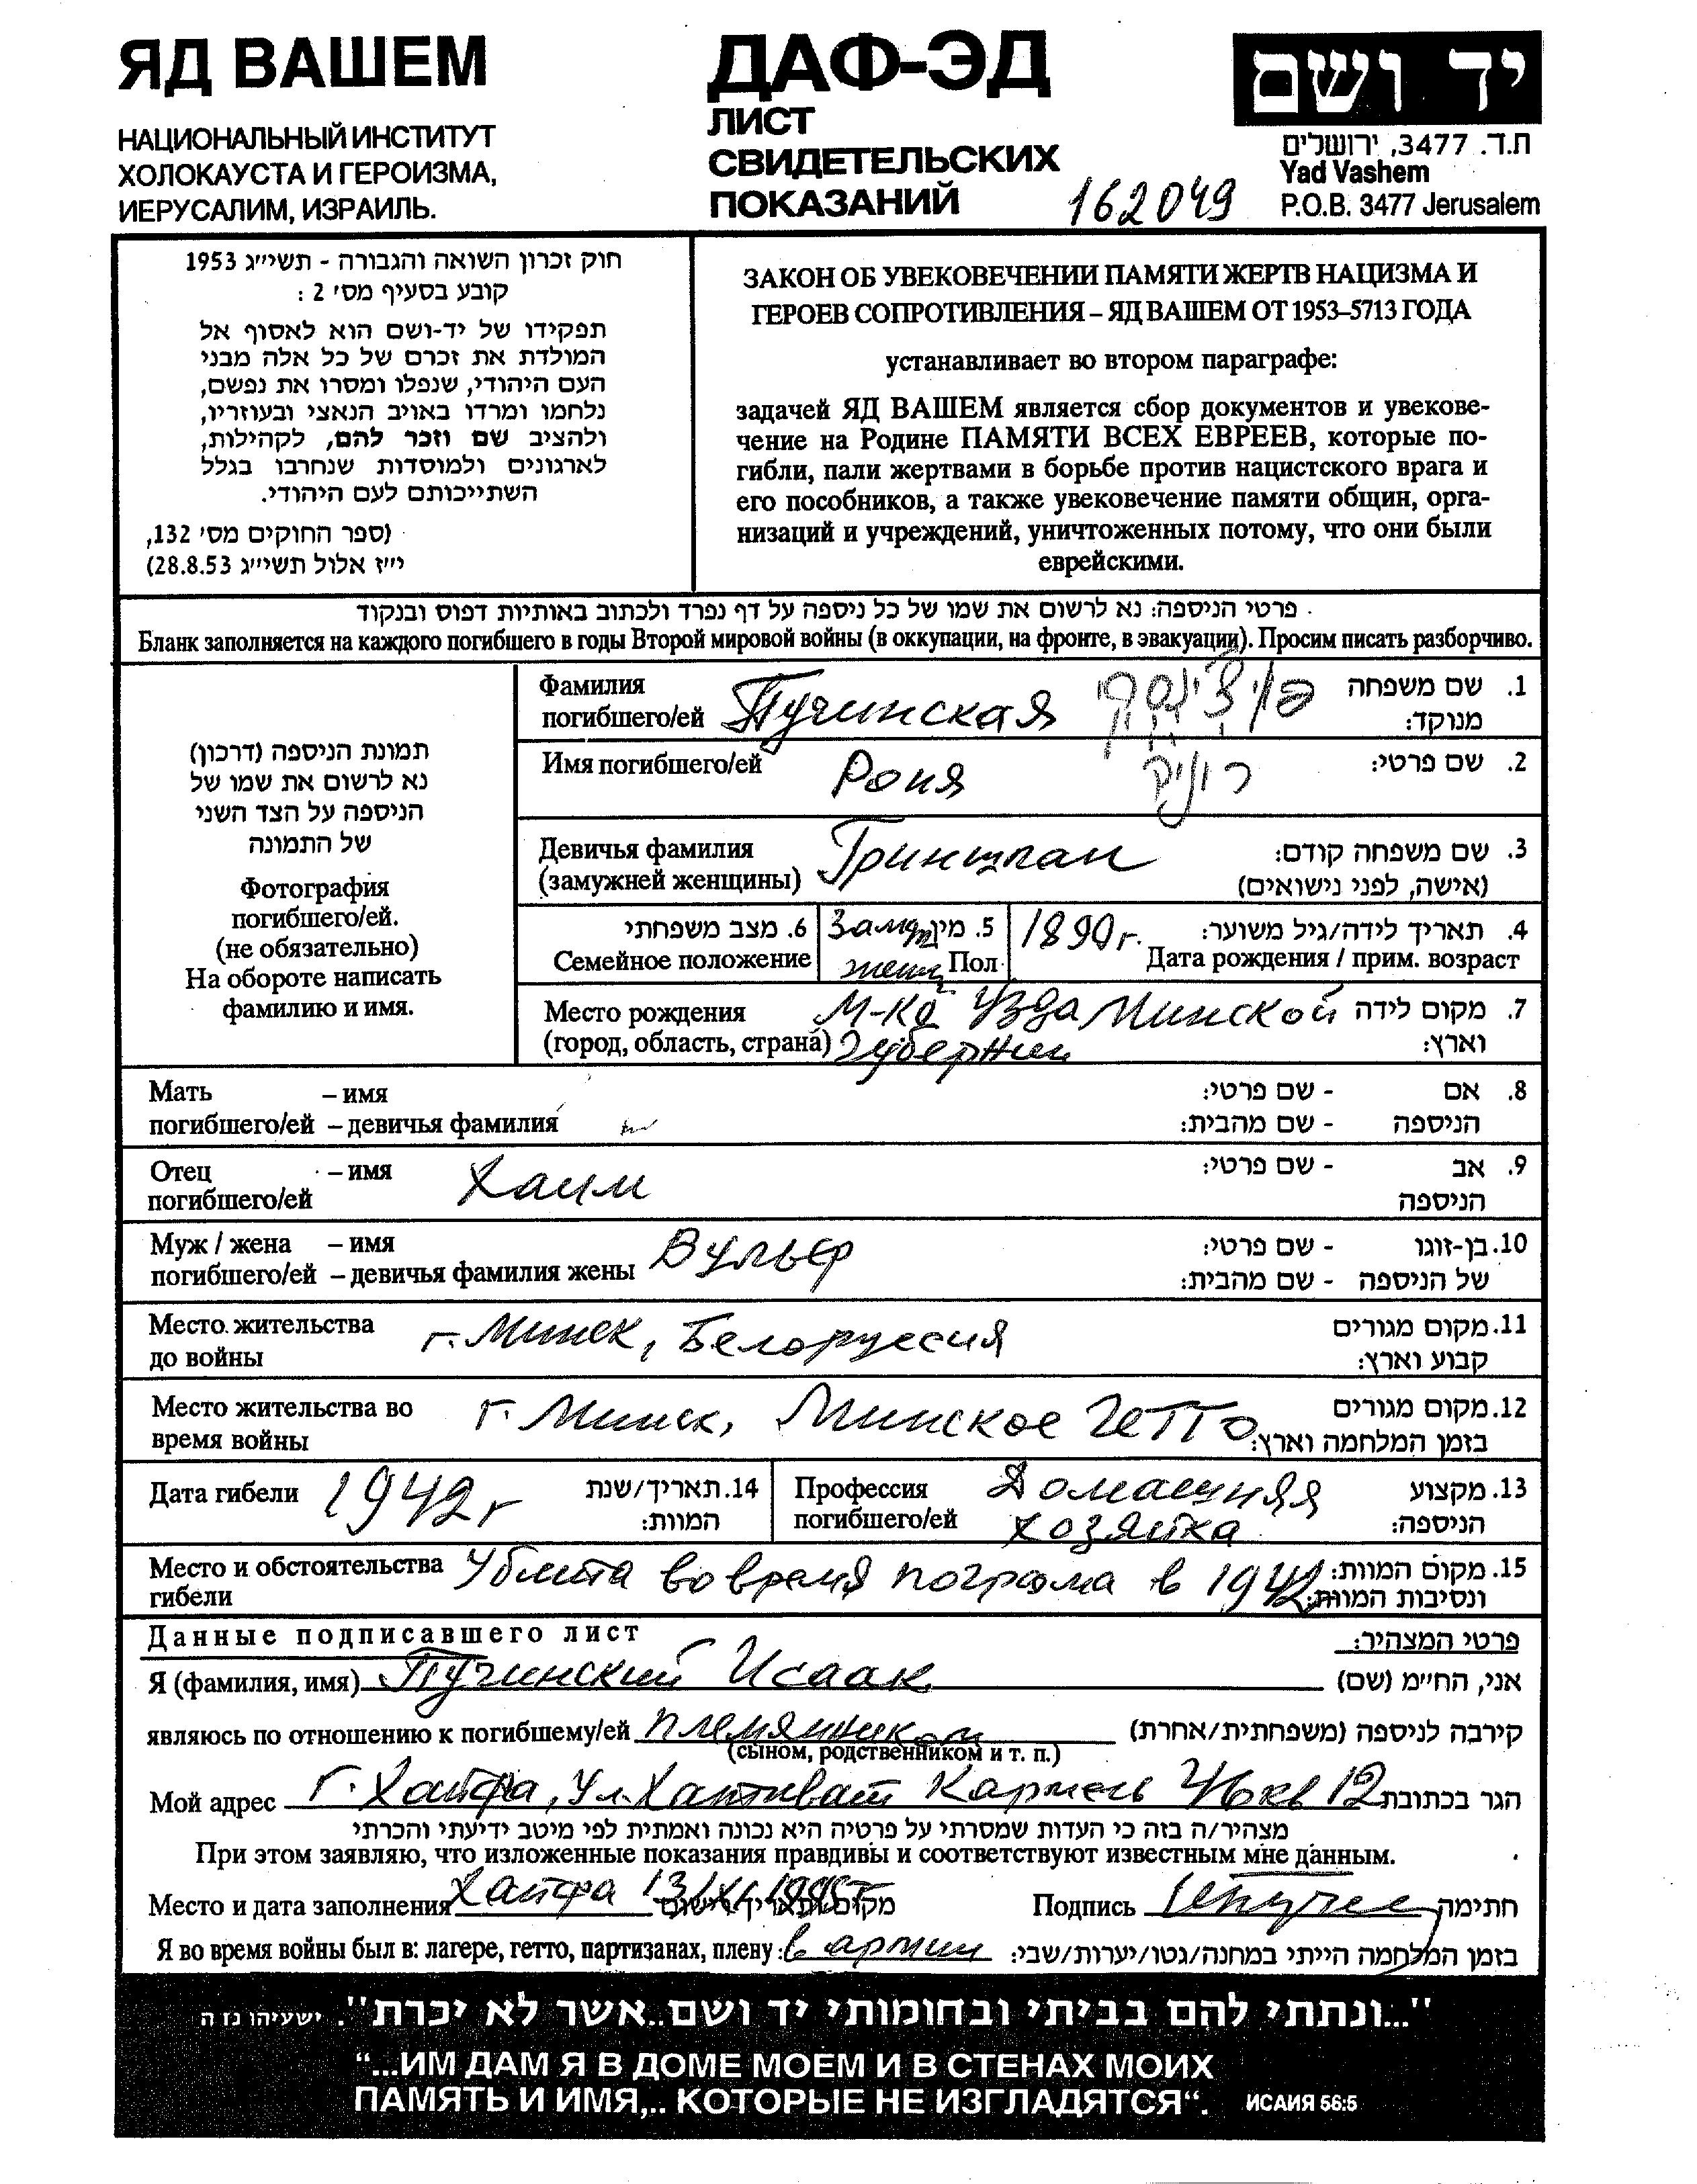 ЯД ВАШЕМ
НАЦИОНАЛЬНЫЙ ИНСТИТУТ
ХОЛОКАУСТА И ГЕРОИЗМА,
ИЕРУСАЛИМ, ИЗРАИЛЬ.
ДАФ-ЭД
ЛИСТ
СВИДЕТЕЛЬСКИХ
ПОКАЗАНИЙ
162049
יד ושם
ת.ד. 3477, ירושלים
Yad Vashem
P.O.B. 3477 Jerusalem
חוק זכרון השואה והגבורה - תשי״ג 1953
קובע בסעיף מס׳ 2 :
תפקידו של יד-ושם הוא לאסוף אל
המולדת את זכרם של כל אלה מבני
העם היהודי, שנפלו ומסרו את נפשם,
נלחמו ומרדו באויב הנאצי ובעוזריו,
ולהציב שם וזכר להם, לקהילות,
לארגונים ולמוסדות שנחרבו בגלל
השתייכותם לעם היהודי.
(ספר החוקים מס׳ 132,
י״ז אלול תשי״ג 28.8.53)
ЗАКОН ОБ УВЕКОВЕЧЕНИИ ПАМЯТИ ЖЕРТВ НАЦИЗМА И
ГЕРОЕВ СОПРОТИВЛЕНИЯ – ЯД ВАШЕМ ОТ 1953–5713 ГОДА
устанавливает во втором параграфе:
задачей ЯД ВАШЕМ является сбор документов и увекове-
чение на Родине ПАМЯТИ ВСЕХ ЕВРЕЕВ, которые по-
гибли, пали жертвами в борьбе против нацистского врага и
его пособников, а также увековечение памяти общин, орга-
низаций и учреждений, уничтоженных потому, что они были
еврейскими.
פרטי הניספה: נא לרשום את שמו של כל ניספה על דף נפרד ולכתוב באותיות דפוס ובנקוד
Бланк заполняется на каждого погибшего в годы Второй мировой войны (в оккупации, на фронте, в эвакуации). Просим писать разборчиво.
תמונת הניספה (דרכון)
נא לרשום את שמו של
הניספה על הצד השני
של התמונה
Фотография
погибшего/ей.
(не обязательно)
На обороте написать
фамилию и имя.
Фамилия
погибшего/ей Пучинская
1. שם משפחה
מנוקד:
Имя погибшего/ей Роня
2. שם פרטי:
Девичья фамилия
(замужней женщины) Гриншпан
3. שם משפחה קודם:
(אישה, לפני נישואים)
6. מצב משפחתי
Семейное положение
Замуж
5. מין
жен Пол
1890 г.
4. תאריך לידה/גיל משוער:
Дата рождения / прим. возраст
Место рождения М-ко Узда Минской
(город, область, страна) губернии
7. מקום לידה
וארץ:
Мать – имя
погибшего/ей – девичья фамилия
8. אם - שם פרטי:
הניספה - שם מהבית:
Отец – имя
погибшего/ей Хаим
9. אב - שם פרטי:
הניספה
Муж / жена – имя
погибшего/ей – девичья фамилия жены Вульф
10. בן-זוגו - שם פרטי:
של הניספה - שם מהבית:
Место жительства
до войны г. Минск, Белоруссия
11. מקום מגורים
קבוע וארץ:
Место жительства во
время войны г. Минск, Минское гетто
12. מקום מגורים
בזמן המלחמה וארץ:
Дата гибели 1942 г
14. תאריך/שנת
המוות:
Профессия Домашняя
погибшего/ей хозяйка
13. מקצוע
הניספה:
Место и обстоятельства
гибели Убита во время погрома в 1942
15. מקום המוות:
ונסיבות המוות:
Данные подписавшего лист
פרטי המצהיר:
Я (фамилия, имя) Пучинский Исаак
אני, החי״מ (שם)
являюсь по отношению к погибшему/ей племянником
קירבה לניספה (משפחתית/אחרת)
(сыном, родственником и т. п.)
Мой адрес г. Хайфа, ул. Хативат Кармель 46 кв 12
הגר בכתובת
מצהיר/ה בזה כי העדות שמסרתי על פרטיה היא נכונה ואמתית לפי מיטב ידיעתי והכרתי
При этом заявляю, что изложенные показания правдивы и соответствуют известным мне данным.
Место и дата заполнения Хайфа
מקום ותאריך רישום
Подпись
חתימה
Я во время войны был в: лагере, гетто, партизанах, плену: в армии
בזמן המלחמה הייתי במחנה/גטו/יערות/שבי:
"...ונתתי להם בביתי ובחומותי יד ושם..אשר לא יכרת". ישעיהו נו ה
“...ИМ ДАМ Я В ДОМЕ МОЕМ И В СТЕНАХ МОИХ
ПАМЯТЬ И ИМЯ,.. КОТОРЫЕ НЕ ИЗГЛАДЯТСЯ“. ИСАИЯ 56:5